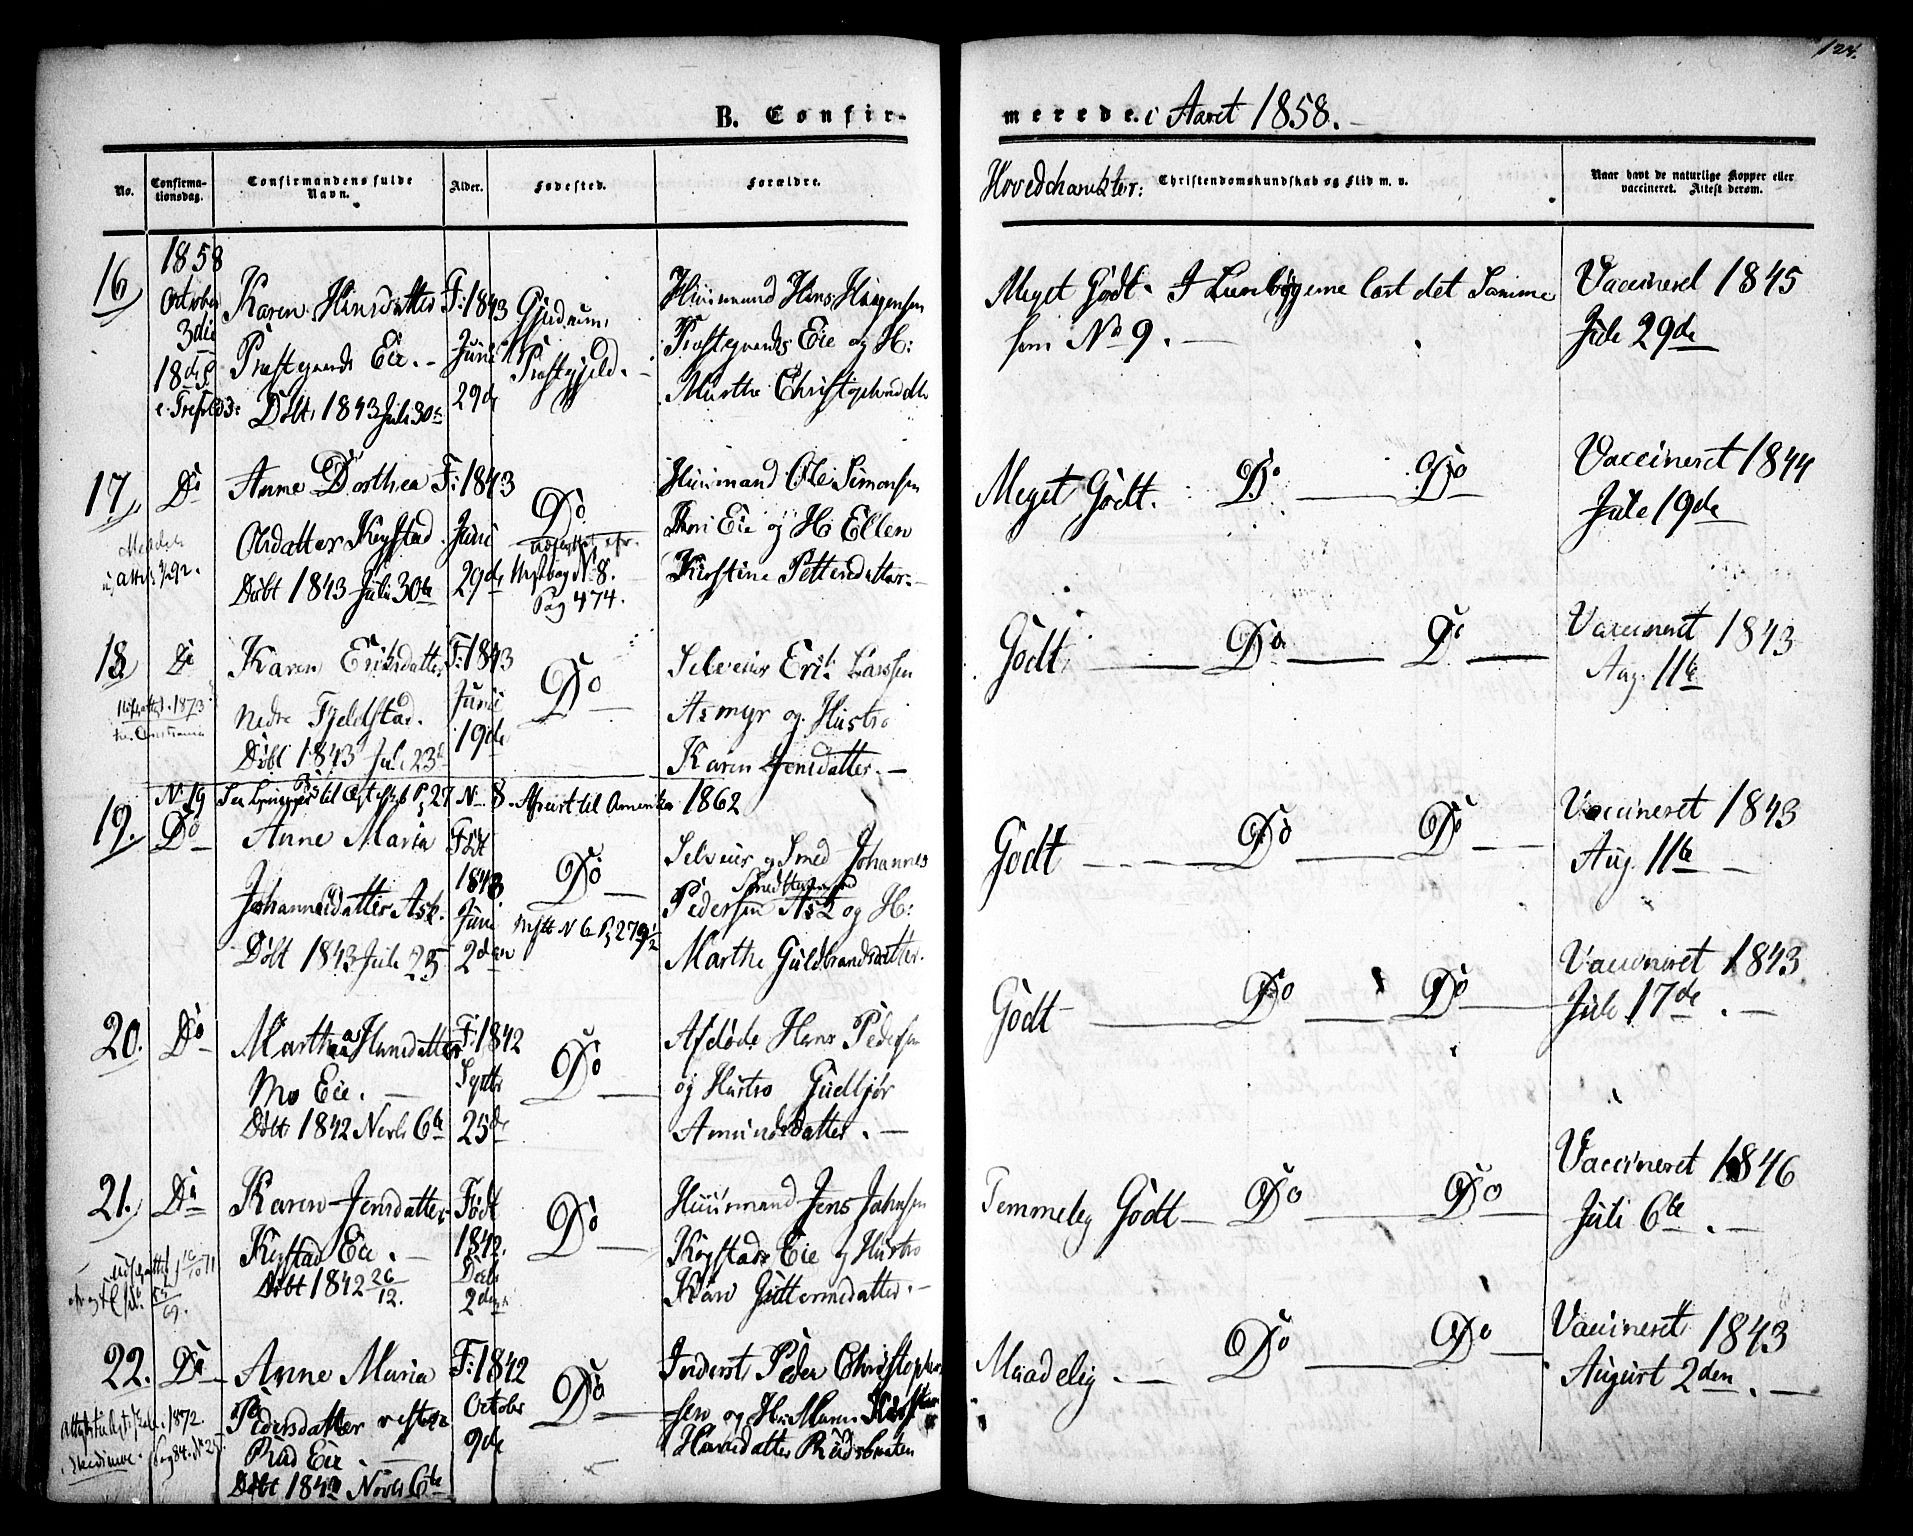 124.
B. Confir-
merede. i Aaret 1858.
No.
Confirma-
tionsdag.
Confirmandens fulde
Navn.
Alder.
Fødested.
Forældre.
Hovedcharakter: Christendomskundskab og Flid m. v.
Naar havt de naturlige Kopper eller
vaccineret. Attest derom.
16
1858
October
3die
18de S.
e. Trefold:
Karen Hansdatter
Præstegaards Eie. -
Døbt 1843 Juli 30te
F: 1843
Juni
29de
Gjedrum
Præstgjeld. -
Huusmand Hans Hansen
Præstegaards Eie og H:
Marthe Christophersdatter
Meget Godt. I det Samme
som No 9. -
Vaccineret 1845
Juli 29de
17.
Do
Anne Dorthea
Olsdatter Kogstad
Døbt 1843 Juli 30te
F: 1843
Juni
29de
Do
No 8.
Pag 474.
Huusmand Ole Simonsen
Eie og H: Ellen
Kirstine Pettersdatter. -
Meget Godt. Do — Do
Vaccineret 1844
Juli 19de
18.
Do
1873
Karen Eriksdatter
Nedre Fjeldstad.
Døbt 1843 Juli 23de
F: 1843
Juni
19de
Do
Selveier Erik Larssen
Asmyr og Hustro
Karen Jensdatter. -
Godt — Do — Do —
Vaccineret 1843
Aug. 11te
No 19 til P. 27 No 8. Afreist til Amerika 1862
19.
Do
Anne Maria
Johannesdatter Ask.
Døbt 1843 Juli 23
Født
1843
Juni
2den
Do
No 6 P. 279 1/2
Selveier og Smed Johannes
Pedersen Ask og H:
Marthe Guldbrandsdatter.
Godt — Do — Do —
Vaccineret 1843
Aug. 11te —
20.
Do
Marthea Hansdatter
Mo Eie. -
Døbt 1842 Novb. 6te
F: 1842
Septbr
25de
Do
Afdøde Hans Pedersen
og Hustro Gudbjør
Amundsdatter. -
Godt — Do — Do —
Vaccineret 1843
Juli 17de. —
21.
Do
Karen Jensdatter
Kogstad Eie. -
Døbt 1842 26/12.
Født
1842.
Decbr
2den
Do
Huusmand Jens Johnsen
Kogstads Eie og Hustro
Kari Guttormsdatter. -
Temmelig Godt — Do — Do —
Vaccineret 1846
Juli 6te. —
22.
Do
1872.
Pag 84. No 25.
Anne Maria
Pedersdatter vestre
Rud Eie. -
Døbt 1842 Novb. 6te
F: 1842
October
9de
Do
Inderst Peder Christopher-
sen og H: Maren
Hansdatter Rudsbraaten
Maadelig. — Do — Do —
Vaccineret 1843
August 2den. —